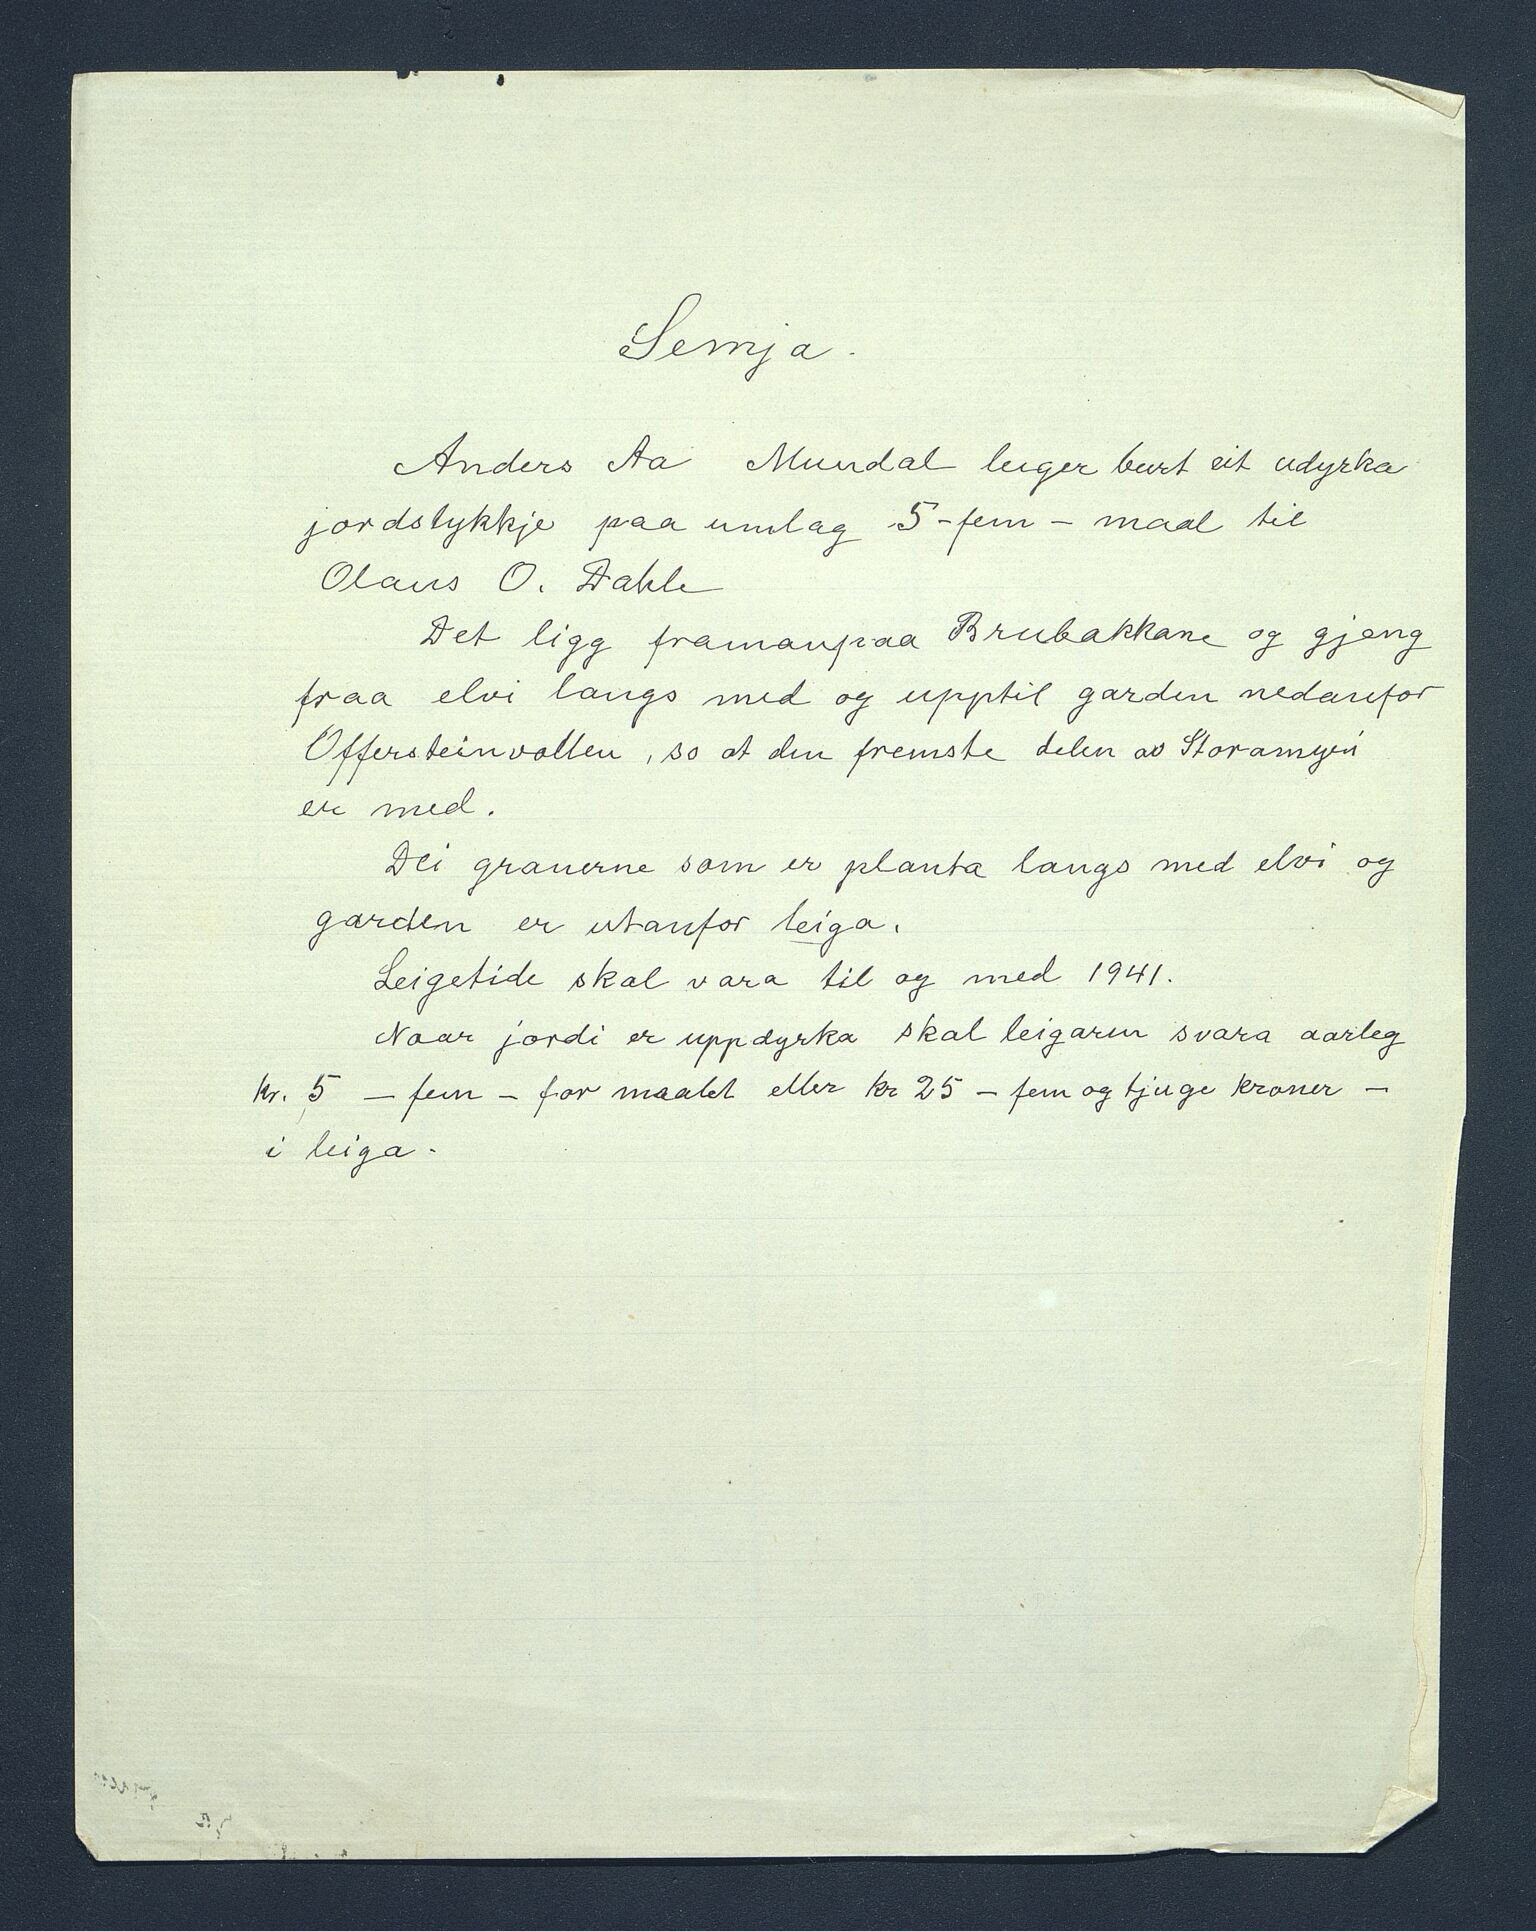 Semja.
Anders Aa Mundal leiger burt eit udyrka
jordstykkje paa umlag 5 - fem - maal til
Olaus O. Dahle
Det ligg framanpaa Brubakkane og gjeng
fraa elvi langs med og upptil garden nedanfor
Offersteinvollen, so at den fremste delen av Storamyri
er med.
Dei granerne som er planta langs med elvi og
garden er utanfor leiga.
Leigetide skal vara til og med 1941.
Naar jordi er uppdyrka skal leigaren svara aarleg
kr. 5 - fem - for maalet eller kr 25 - fem og tjuge kroner -
i leiga.